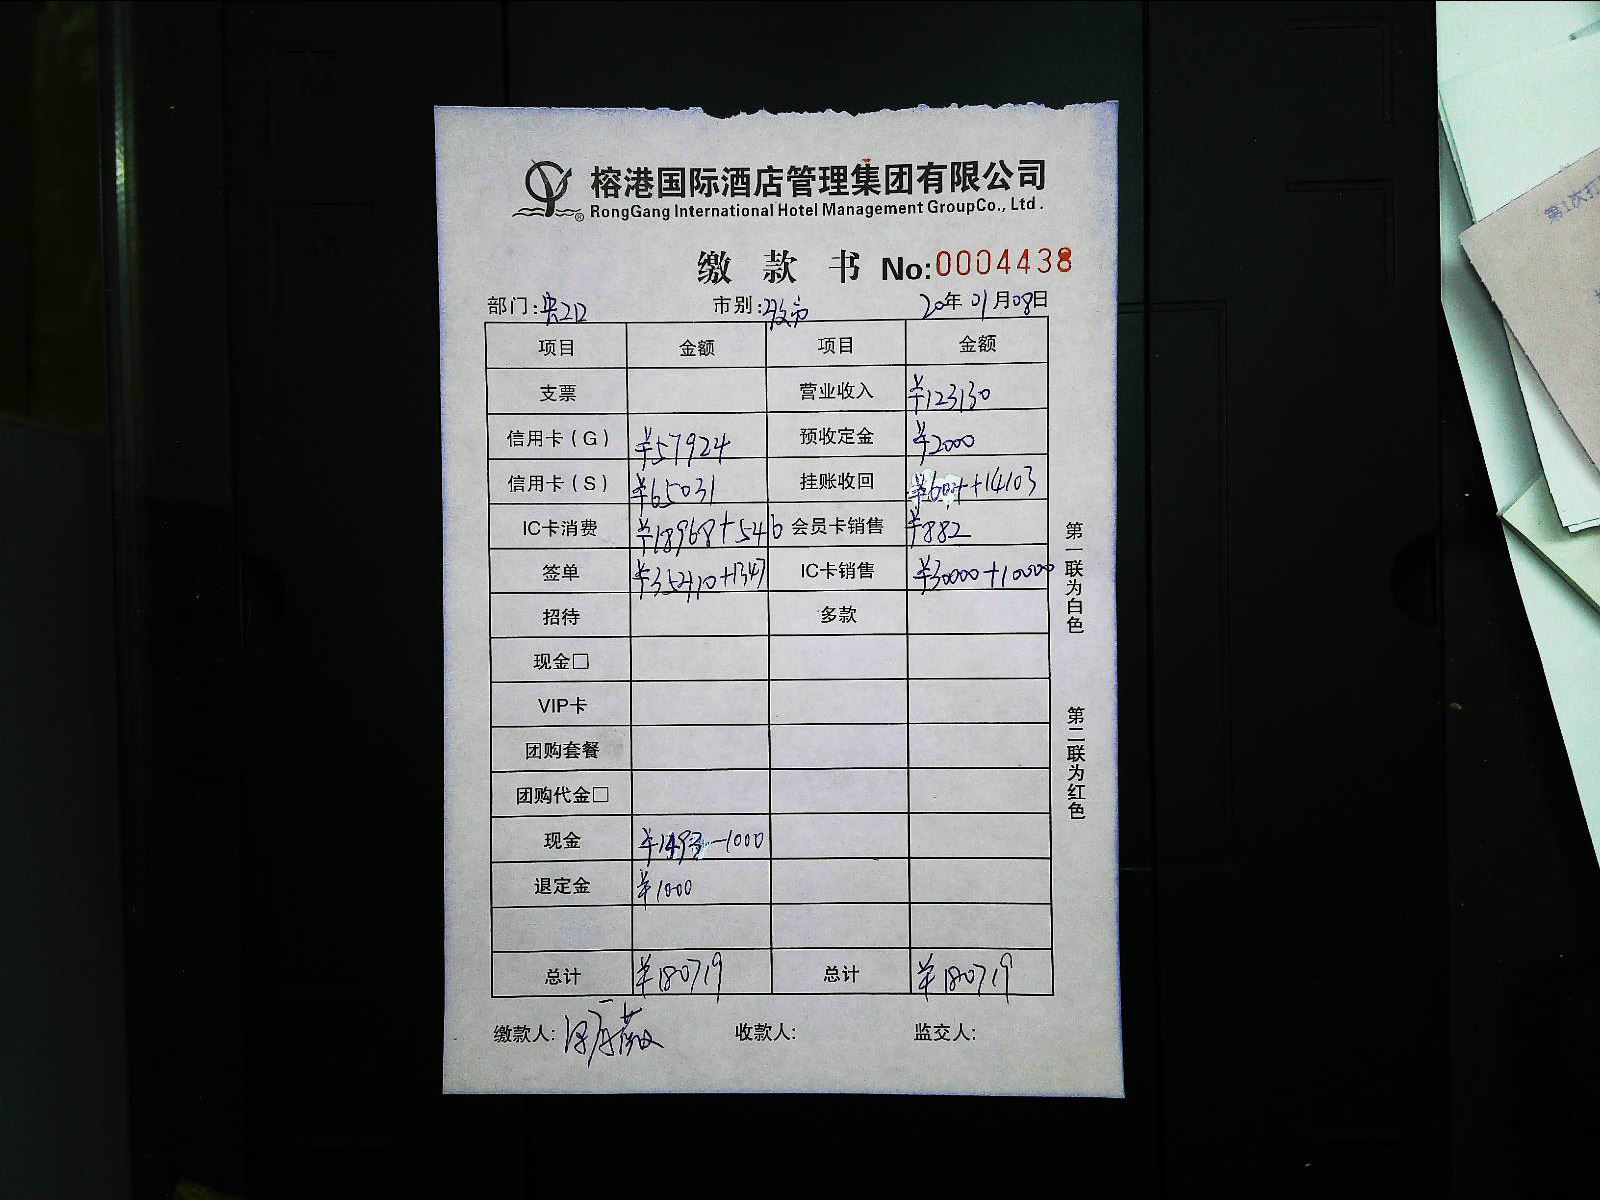 榕港国际酒店管理集团有限公司
RongGang International Hotel Management GroupCo., Ltd.
缴 款 书 No:0004438
部门: 市别: 20年 01月08日
项目 金额 项目 金额
支票 营业收入 ¥123130
信用卡(G) ¥57924 预收定金 ¥2000
信用卡(S) ¥65031 挂账收回 +14103
IC卡消费 ¥18968+546 会员卡销售 ¥882
签单 ¥35410+1347 IC卡销售 ¥30000+10000
招待 多款
现金□
VIP卡
团购套餐
团购代金□
现金 ¥1493-1000
退定金 ¥1000
总计 ¥180719 总计 ¥180719
缴款人: 收款人: 监交人:
第一联为白色
第二联为红色
第1次打